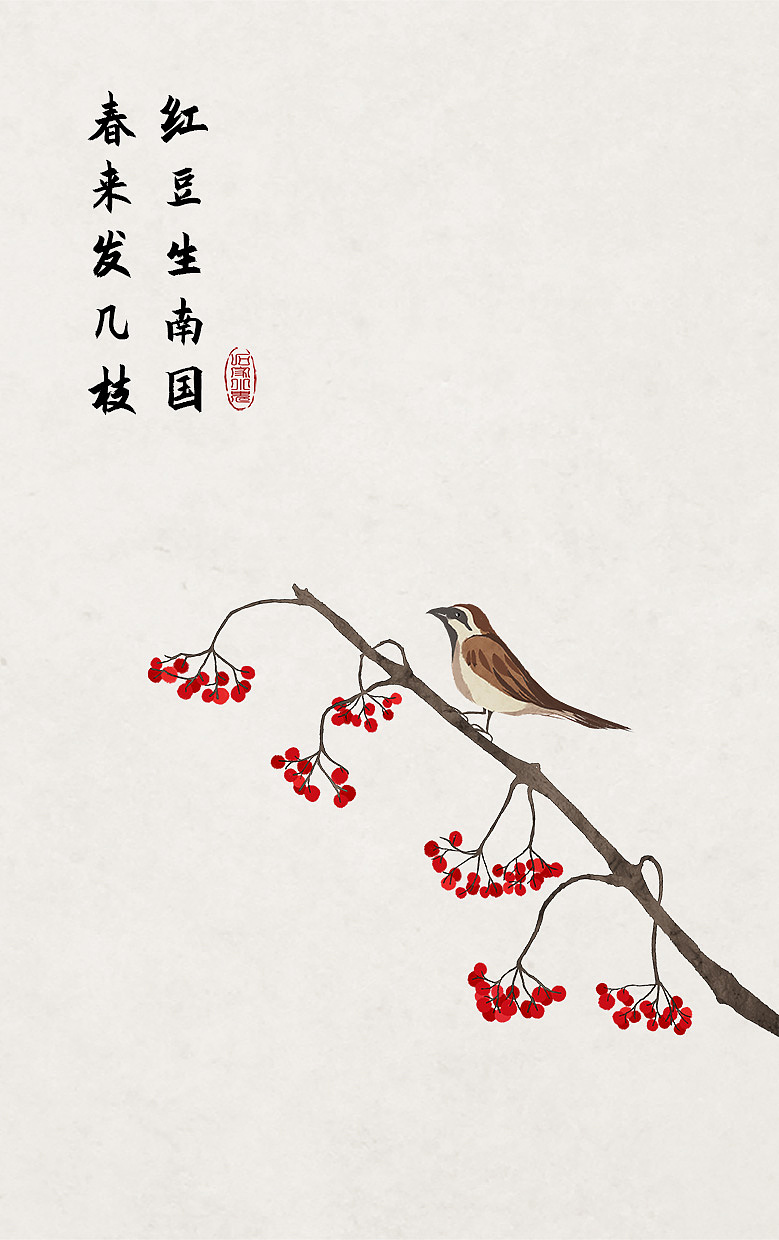 红豆生南国
春来发几枝